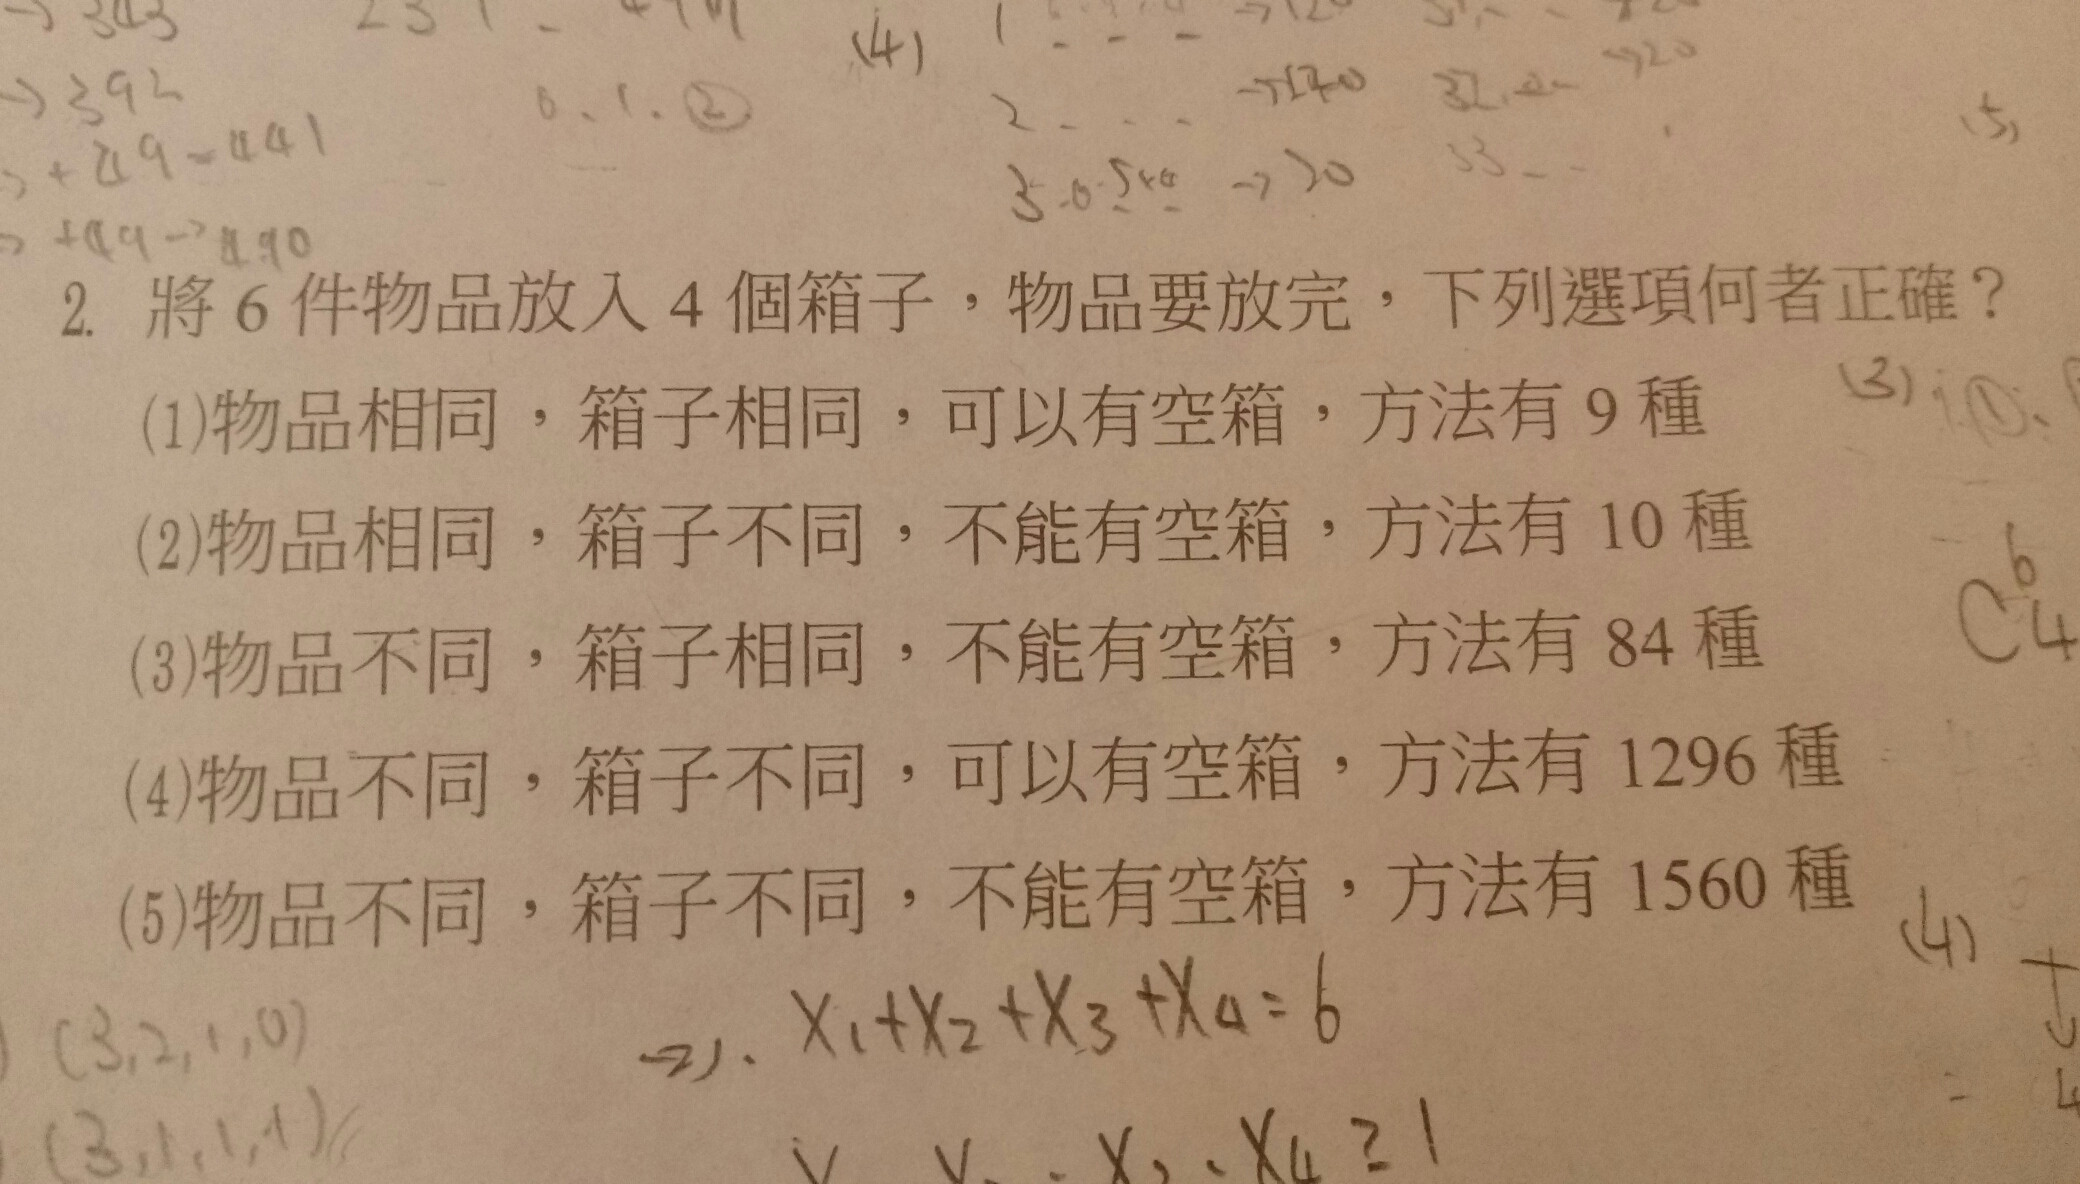 → 343
→ 392
→ +49 = 441
→ +49 → 490
0、1、②
(4)
1 → 120
2 → 120
3 → 20
→ 20
33
(5)
2. 將 6 件物品放入 4 個箱子，物品要放完，下列選項何者正確？
(1)物品相同，箱子相同，可以有空箱，方法有 9 種
(3)
(2)物品相同，箱子不同，不能有空箱，方法有 10 種
(3)物品不同，箱子相同，不能有空箱，方法有 84 種
C⁶₄
(4)物品不同，箱子不同，可以有空箱，方法有 1296 種
(5)物品不同，箱子不同，不能有空箱，方法有 1560 種
(4)
(3,2,1,0)
X₁+X₂+X₃+X₄=6
(3,1,1,1)
X₄≥1